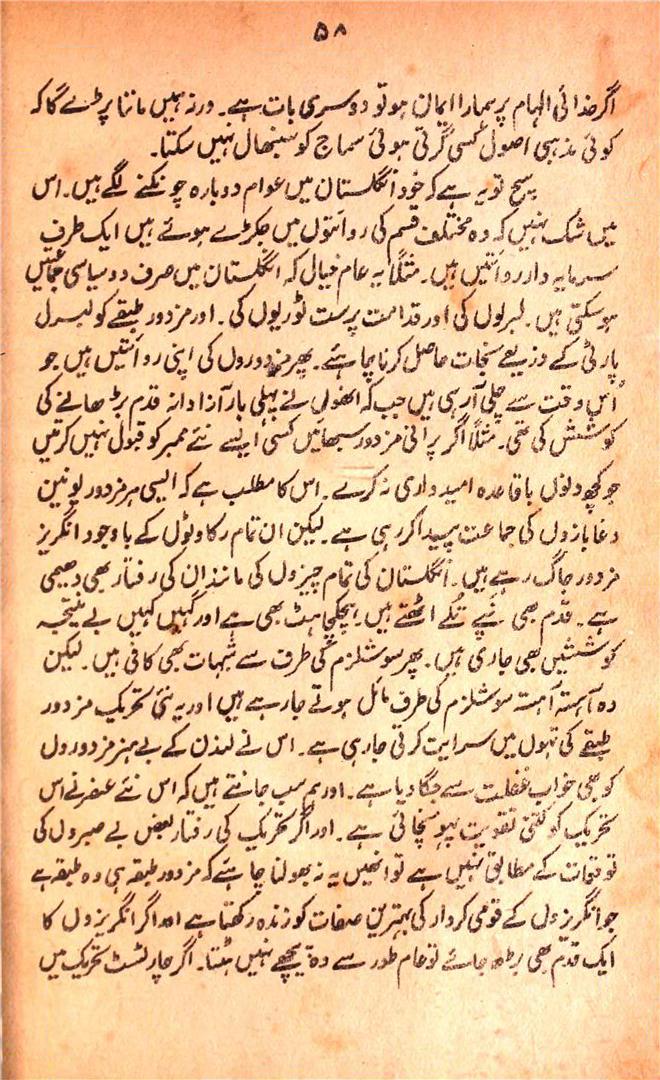 ۵۸
اگر خدائی الہام پر ہمارا ایمان ہو تو دوسری بات ہے۔ ورنہ ہمیں ماننا پڑے گا کہ
کوئی مذہبی اصول کسی گرتی ہوئی سماج کو سنبھال نہیں سکتا۔
سچ تو یہ ہے کہ خود انگلستان میں عوام دوبارہ چونکنے لگے ہیں۔ اس
میں شک نہیں کہ وہ مختلف قسم کی روائتوں میں جکڑے ہوئے ہیں ایک طرف
سرمایہ دار روائتیں ہیں۔ مثلاً یہ عام خیال کہ انگلستان میں صرف دو سیاسی جماعتیں
ہو سکتی ہیں۔ لبرلوں کی اور قدامت پرست ٹوریوں کی۔ اور مزدور طبقے کو لبرل
پارٹی کے ذریعے نجات حاصل کرنا چاہئے۔ پھر مزدوروں کی اپنی روائتیں ہیں جو
اُس وقت سے چلی آ رہی ہیں جب کہ انھوں نے پہلی بار آزادانہ قدم بڑھانے کی
کوشش کی تھی۔ مثلاً اگر پرانی مزدور سبھائیں کسی ایسے نئے ممبر کو قبول نہیں کرتیں
جو کچھ دنوں باقاعدہ امیدواری نہ کرے۔ اس کا مطلب ہے کہ ایسی ہر مزدور یونین
دغابازوں کی جماعت پیدا کر رہی ہے۔ لیکن ان تمام رکاوٹوں کے باوجود انگریز
مزدور جاگ رہے ہیں۔ انگلستان کی تمام چیزوں کی مانند ان کی رفتار بھی دھیمی
ہے۔ قدم بھی نپے تُلے اٹھتے ہیں۔ ہچکچاہٹ بھی ہے اور کہیں کہیں بے نتیجہ
کوششیں بھی جاری ہیں۔ پھر سوشلزم کی طرف سے شبہات بھی کافی ہیں۔ لیکن
وہ آہستہ آہستہ سوشلزم کی طرف مائل ہوتے جا رہے ہیں اور یہ نئی تحریک مزدور
طبقے کی تہوں میں سرایت کرتی جا رہی ہے۔ اس نے لندن کے بے ہنر مزدوروں
کو بھی خواب غفلت سے جگا دیا ہے۔ اور ہم سب جانتے ہیں کہ اس نئے عنصر نے اس
تحریک کو کتنی تقویت پہونچائی ہے۔ اور اگر تحریک کی رفتار بعض بے صبروں کی
توقعات کے مطابق نہیں ہے تو انھیں یہ نہ بھولنا چاہئے کہ مزدور طبقہ ہی وہ طبقہ ہے
جو انگریزوں کے قومی کردار کی بہترین صفات کو زندہ رکھتا ہے اور اگر انگریزوں کا
ایک قدم بھی بڑھ جائے تو عام طور سے وہ پیچھے نہیں ہٹتا۔ اگر چارٹسٹ تحریک میں